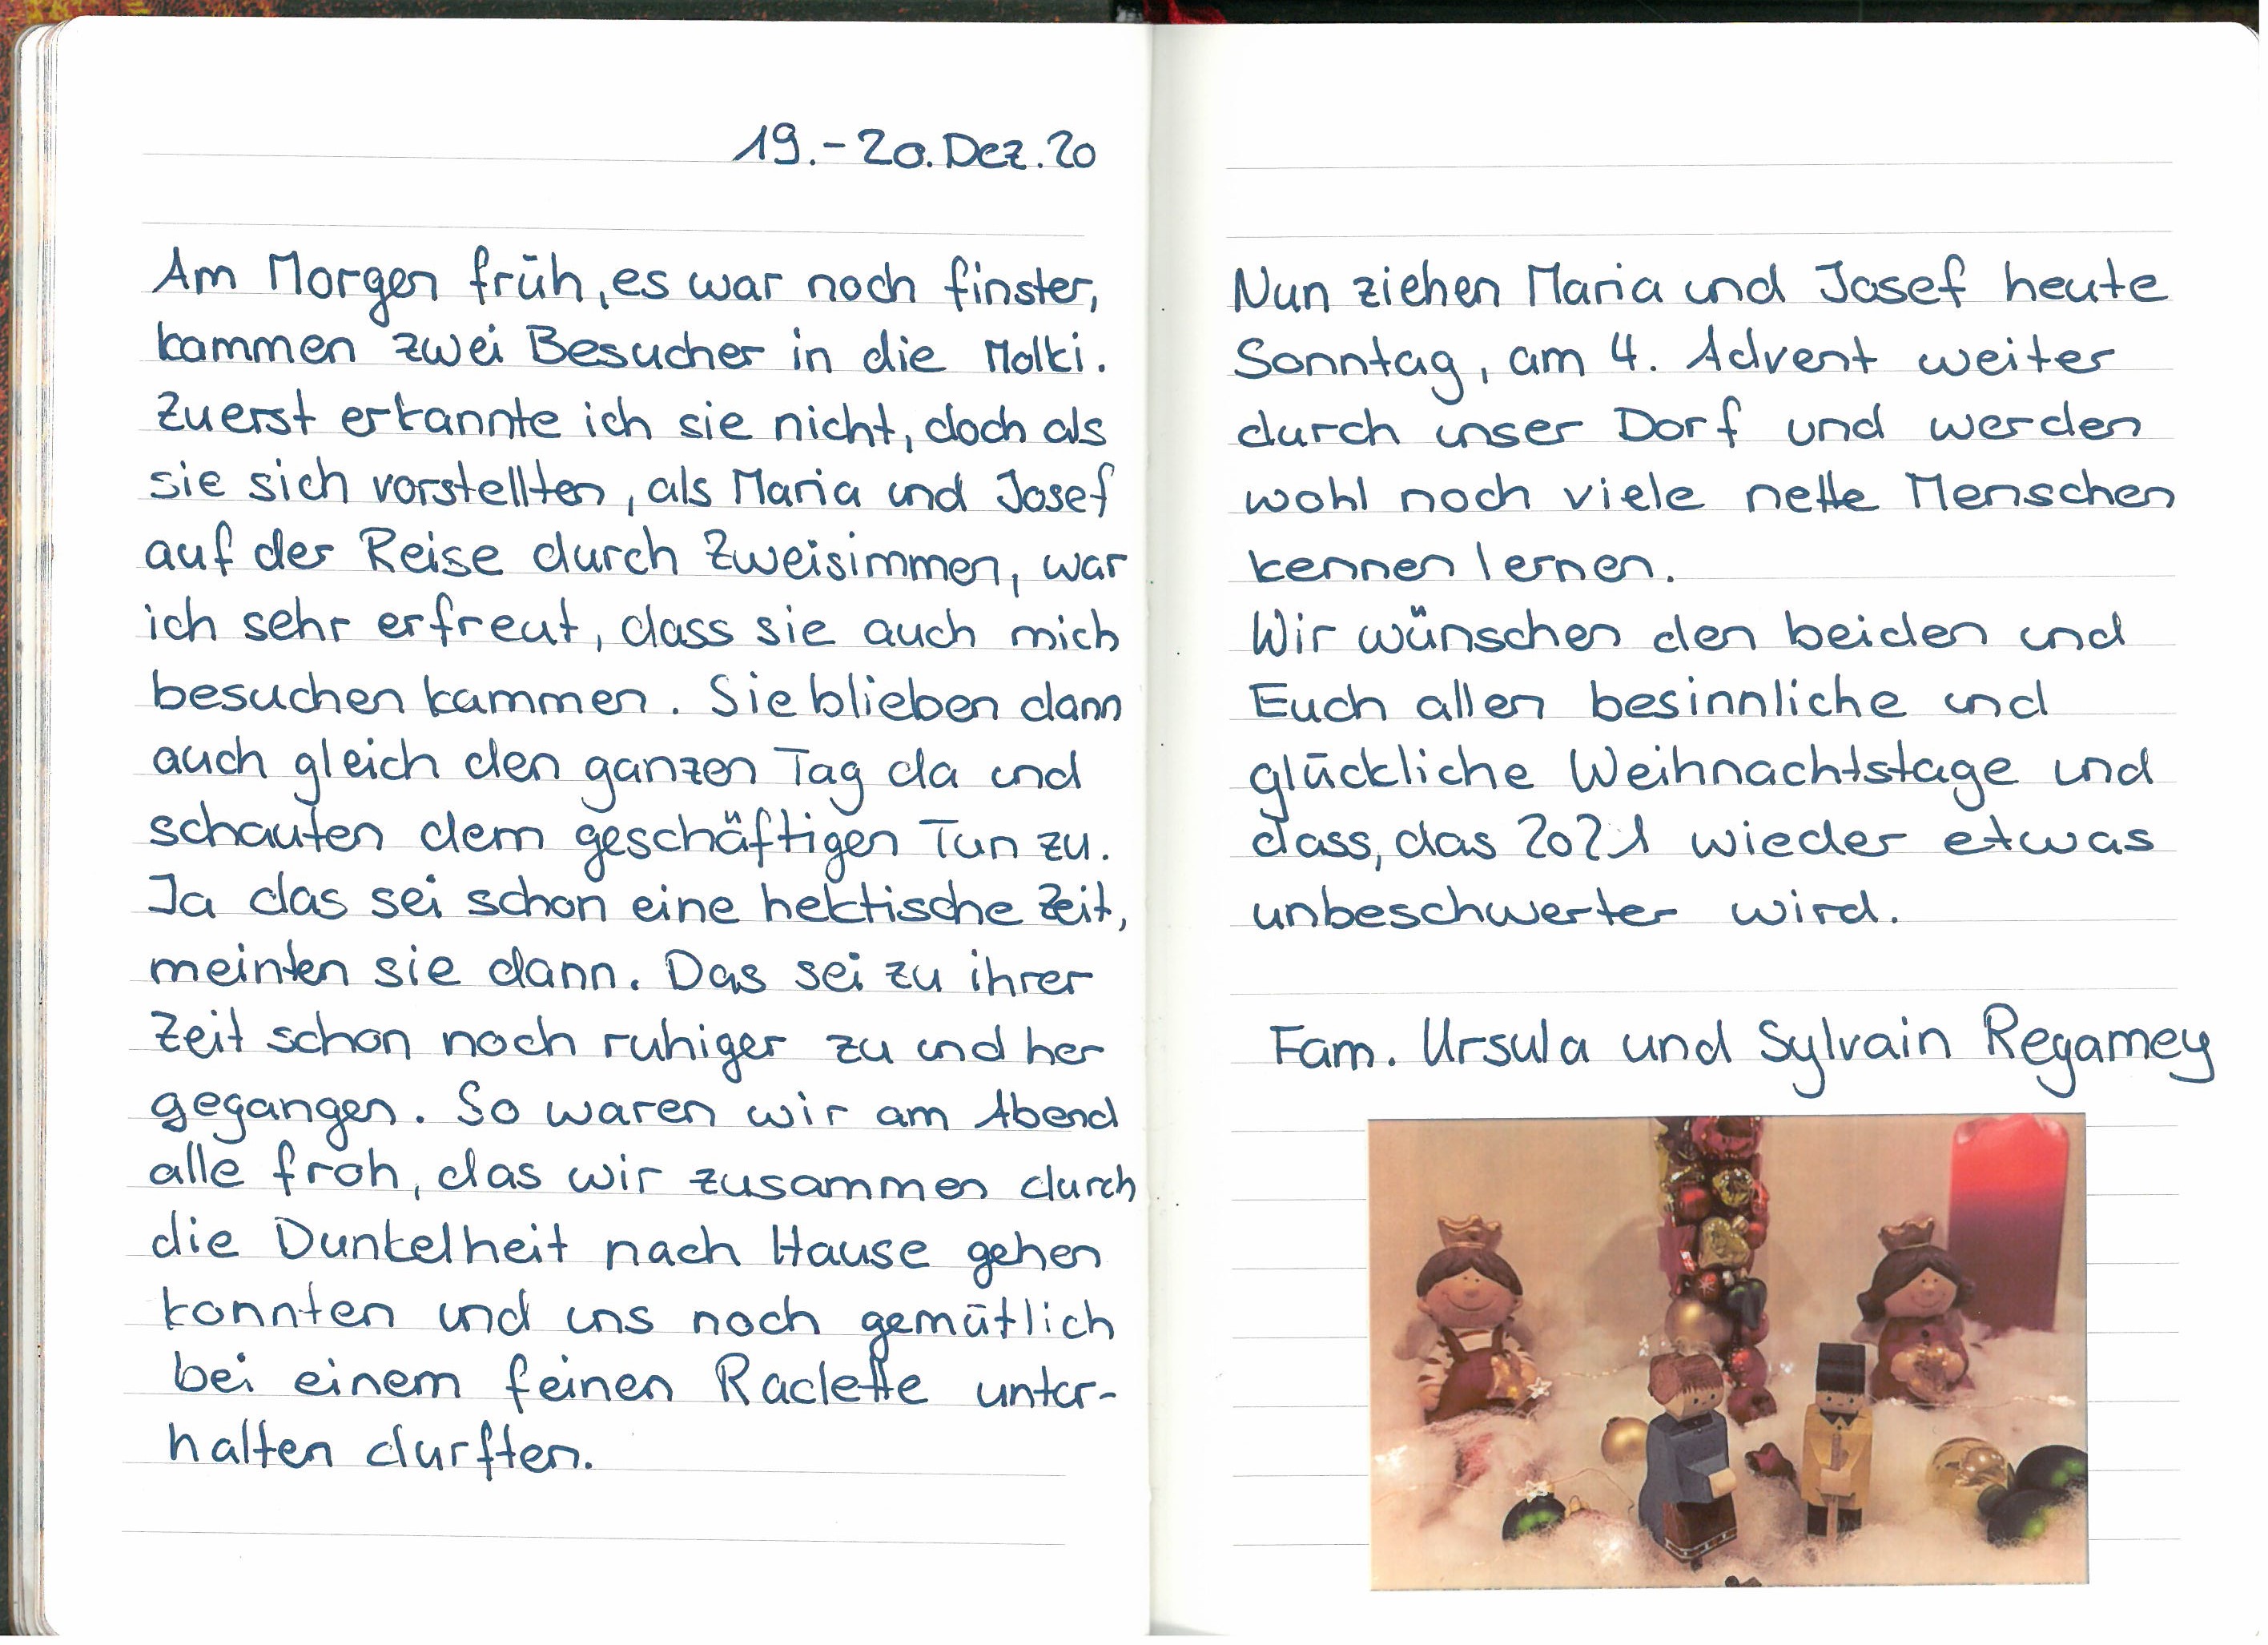 19.-20. Dez. 20
Am Morgen früh, es war noch finster,
kammen zwei Besucher in die Molki.
Zuerst erkannte ich sie nicht, doch als
sie sich vorstellten, als Maria und Josef
auf der Reise durch Zweisimmen, war
ich sehr erfreut, dass sie auch mich
besuchen kammen. Sie blieben dann
auch gleich den ganzen Tag da und
schauten dem geschäftigen Tun zu.
Ja das sei schon eine hektische Zeit,
meinten sie dann. Das sei zu ihrer
Zeit schon noch ruhiger zu und her
gegangen. So waren wir am Abend
alle froh, das wir zusammen durch
die Dunkelheit nach Hause gehen
konnten und uns noch gemütlich
bei einem feinen Raclette unter-
halten durften.
Nun ziehen Maria und Josef heute
Sonntag, am 4. Advent weiter
durch unser Dorf und werden
wohl noch viele nette Menschen
kennen lernen.
Wir wünschen den beiden und
Euch allen besinnliche und
glückliche Weihnachtstage und
dass, das 2021 wieder etwas
unbeschwerter wird.
Fam. Ursula und Sylvain Regamey